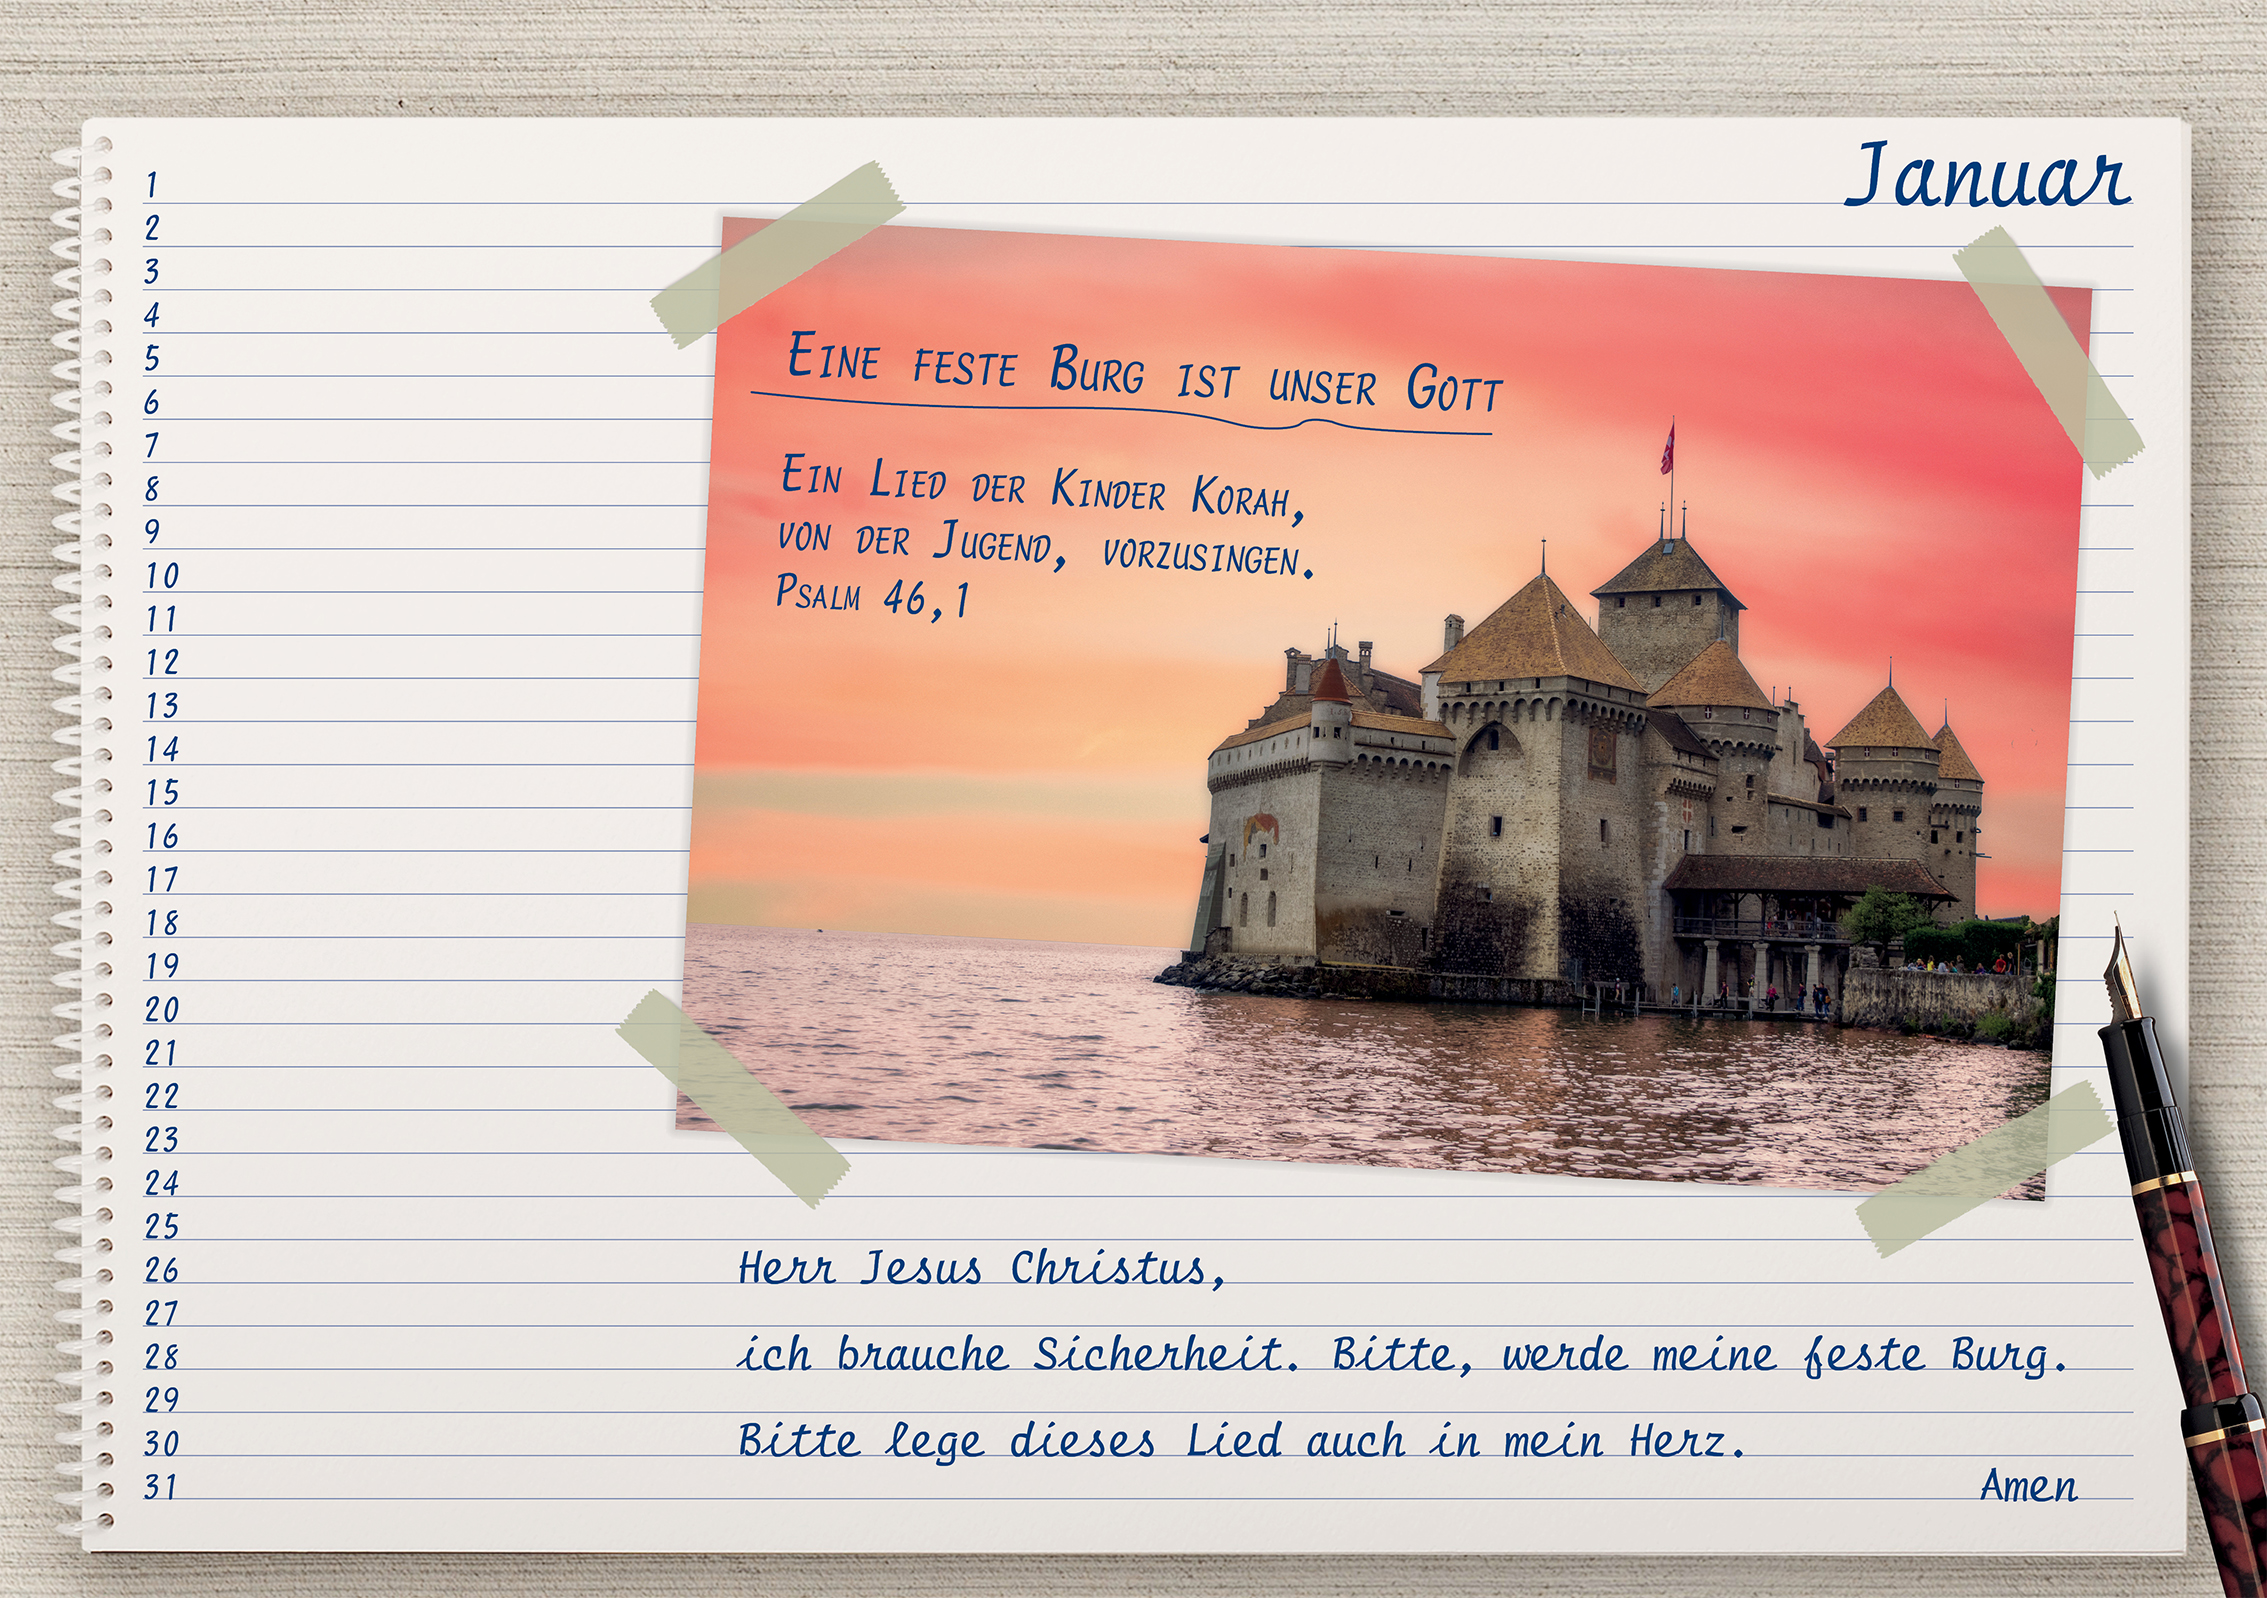 Januar
1
2
3
4
5
6
7
8
9
10
11
12
13
14
15
16
17
18
19
20
21
22
23
24
25
26
27
28
29
30
31
Eine feste Burg ist unser Gott
Ein Lied der Kinder Korah,
von der Jugend, vorzusingen.
Psalm 46,1
Herr Jesus Christus,
ich brauche Sicherheit. Bitte, werde meine feste Burg.
Bitte lege dieses Lied auch in mein Herz.
Amen